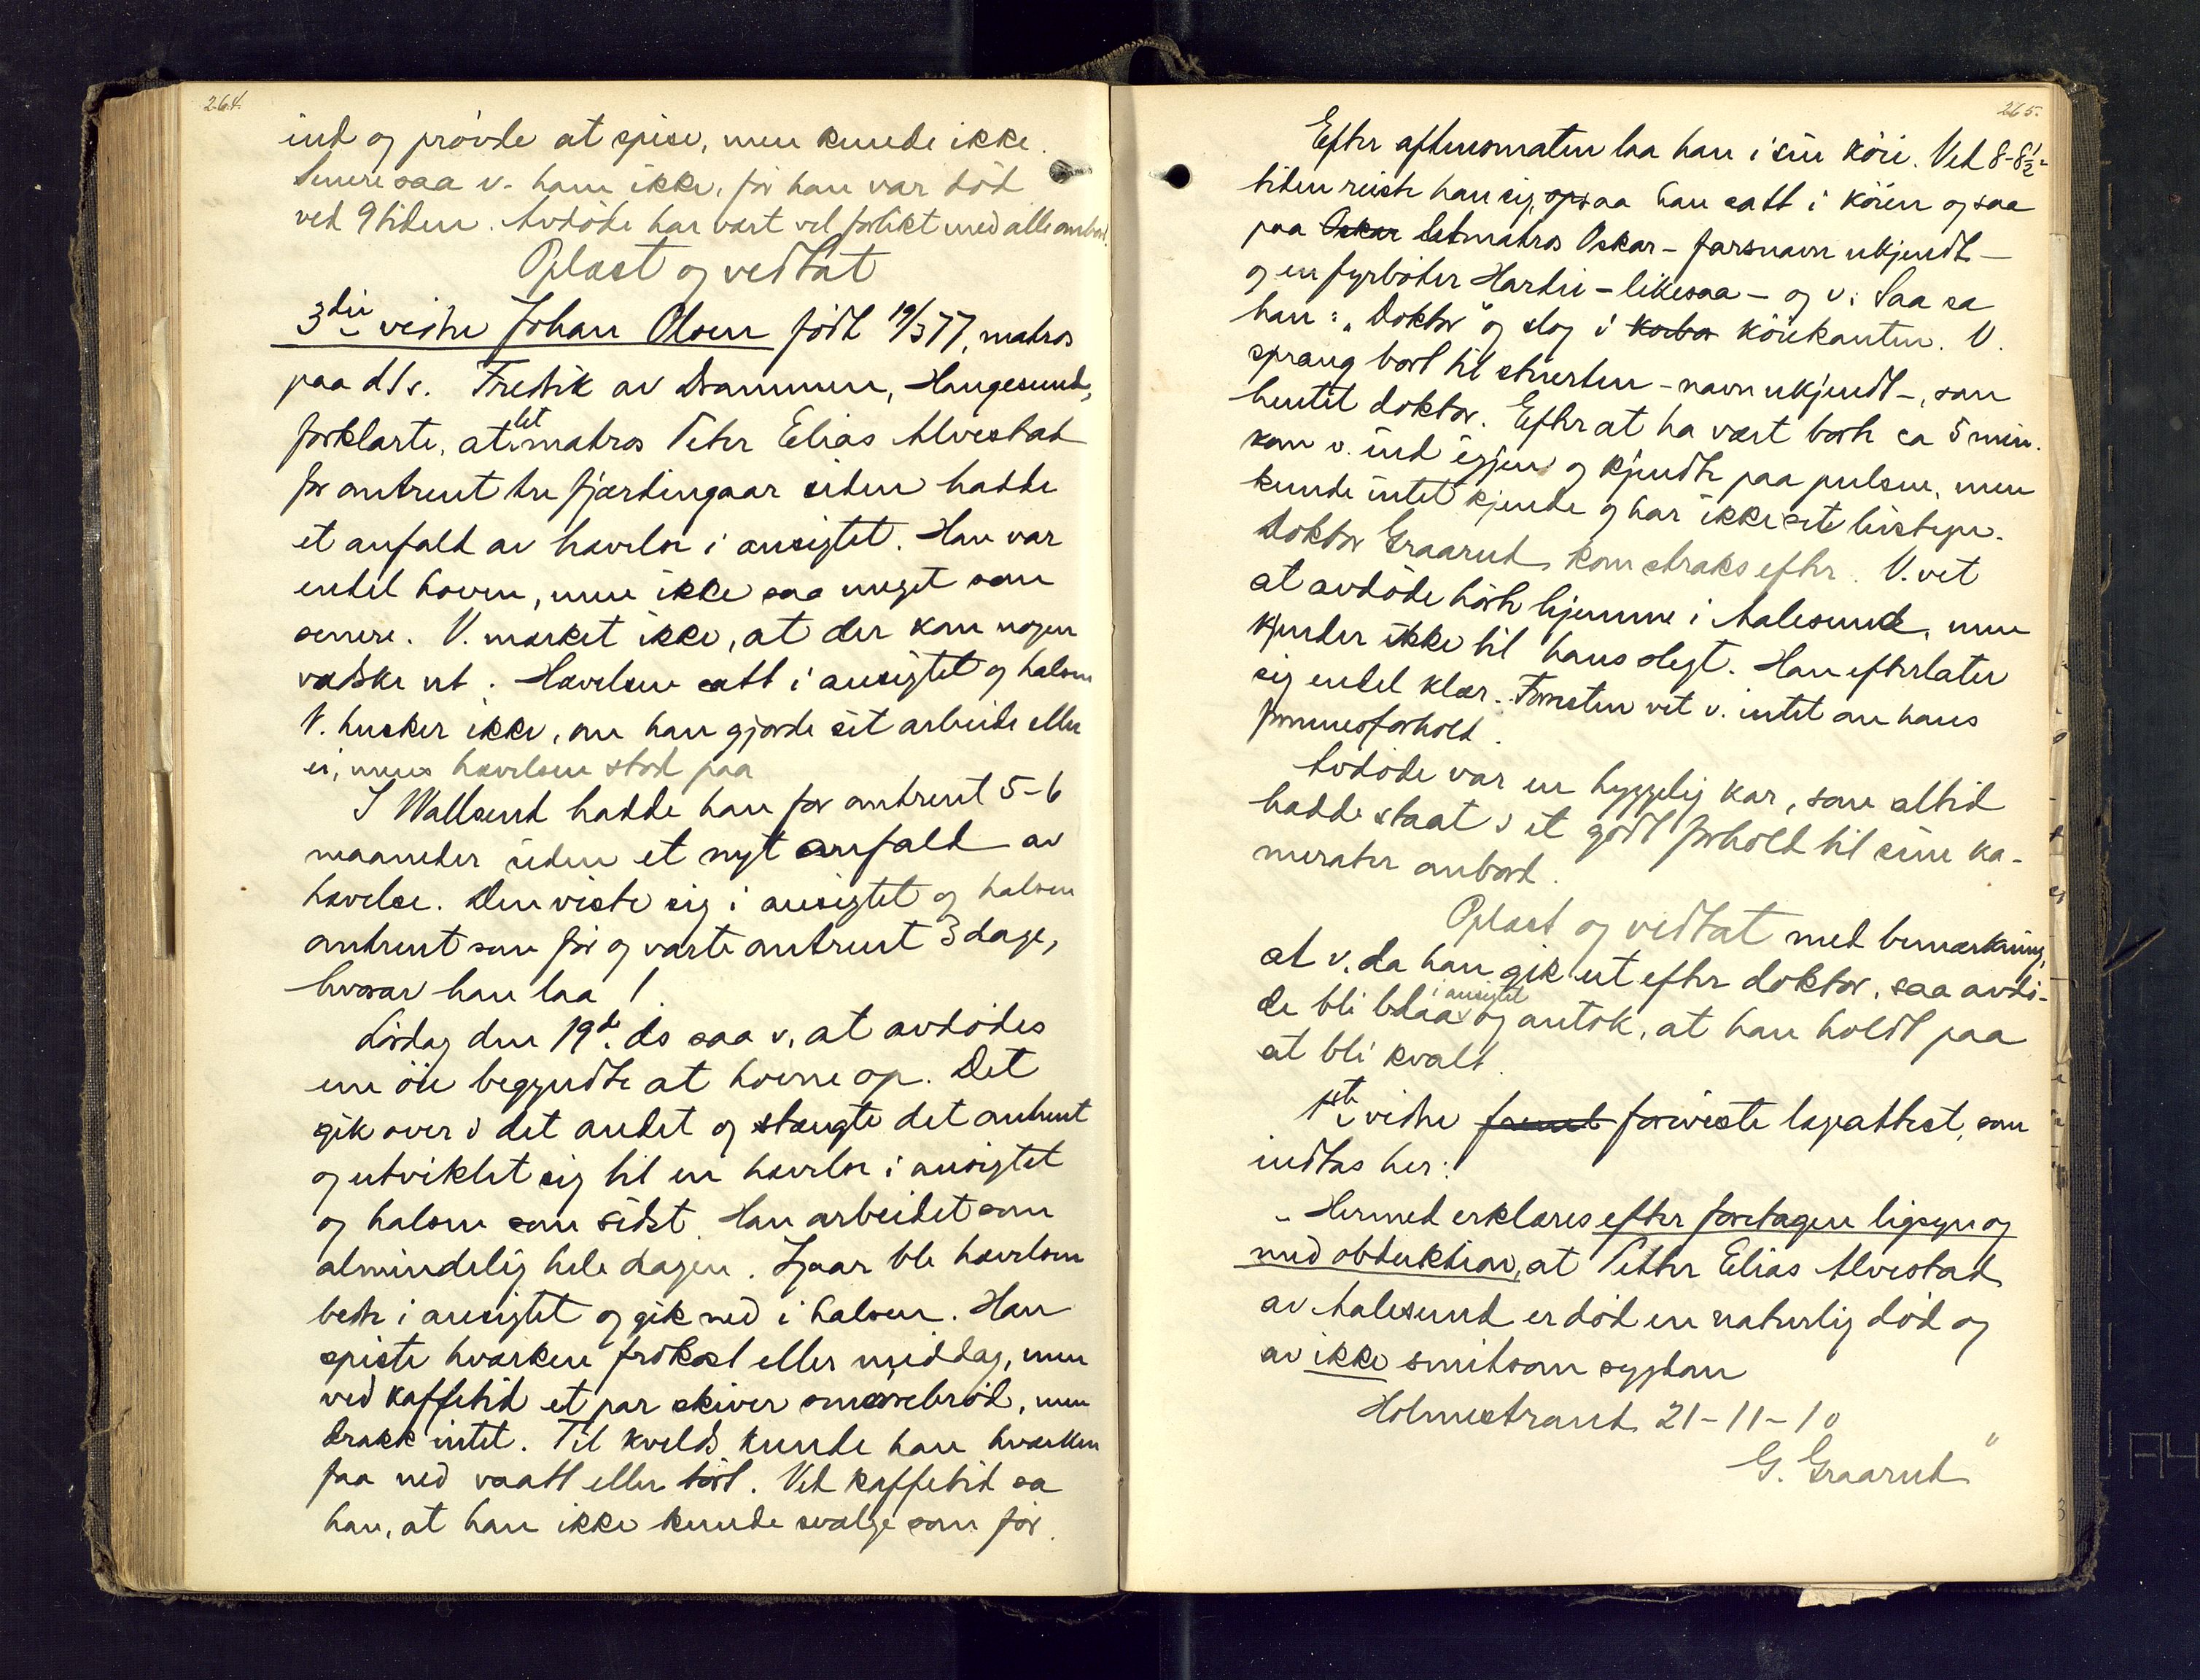 264.
ind og prøvde at spise, men kunde ikke.
Senere saa v. ham ikke, før han var død
ved 9 tiden. Avdøde har vært vel forlikt med alle ombord.
Oplæst og vedtat
3die vidne Johan Olsen født 19/3 77, matros
paa d/s. Fredrik av Drammen, Haugesund,
forklarte, at letmatros Peter Elias Alvestad
for omtrent tre fjerdingaar siden hadde
et anfald av hævelse i ansigtet. Han var
endel hoven, men ikke saa meget som
senere. V. merket ikke, at der kom nogen
vædske ut. Hævelsen satt i ansigtet og halsen
V. husker ikke, om han gjorde sit arbeide eller
ei, mens hævelsen stod paa
I Wallsend hadde han for omtrent 5-6
maaneder siden et nyt anfald av
hævelse. Den viste sig i ansigtet og halsen
omtrent som før og varte omtrent 3 dage,
hvorav han laa 1.
Lørdag den 19de ds saa v, at avdødes
ene øie begyndte at hovne op. Det
gik over i det andet og stængte det omtrent
og utviklet sig til en hævelse i ansigtet
og halsen som sidst. Han arbeidet som
almindelig hele dagen. Igaar ble hævelsen
bedre i ansigtet og gik ned i halsen. Han
spiste hverken frokost eller middag, men
ved kaffetid et par skiver smørrebrød, men
drakk intet. Til kvelds kunde han hverken
faa ned vaatt eller tørt. Ved kaffetid sa
han, at han ikke kunde svælge som før.
265.
Efter aftensmaten laa han i sin køie. Ved 8-8½-
tiden reiste han sig op saa han satt i køien og saa
paa Oskar letmatros Oskar - farsnavn ukjendt -
og en fyrbøter Hardin - likesaa - og v. Saa sa
han: "Doktor" og slog i køiekanten. V.
sprang bort til stuerten - navn ukjendt -, som
hentet doktor. Efter at ha vært borte ca 5 min.
kom v. ind igjen og kjendte paa pulsen, men
kunde intet kjende og har ikke sete livstegn.
Doktor Graarud kom straks efter. V. vet
at avdøde hørte hjemme i Aalesund, men
kjender ikke til hans slegt. Han efterlater
sig endel klær. Forresten vet v. intet om hans
formuesforhold.
Avdøde var en hyggelig kar, som altid
hadde staat i et godt forhold til sine ka-
merater ombord.
Oplæst og vedtat med bemerkning,
at v. da han gik ut efter doktor, saa avdø-
de bli blaa i ansigtet og antok, at han holdt paa
at bli kvalt.
1ste vidne foreviste lægattest, som
indtas her:
"Hermed erklæres efter foretagen ligsyn og
med obduktion, at Petter Elias Alvestad
av Aalesund er død en naturlig død og
av ikke smitsom sygdom
Holmestrand 21-11-10
G. Graarud"